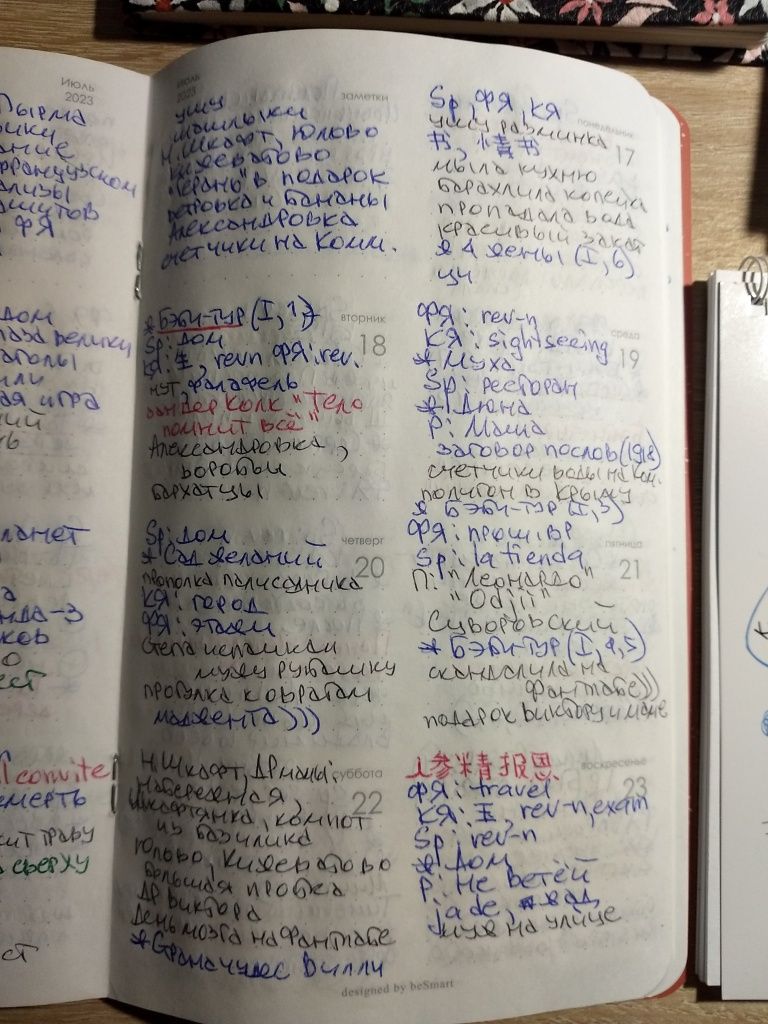 Июль
2023
Пырма
французском
ФЯ
дом
ая игра
нда-3
ков
convite
смерть
сверху
июль
2023
заметки
ушу
шашлыки
Н.Шкафт, Юлово
Кижеватово
"Герань" в подарок
петровка и бананы
Александровка
счетчики на Комм.
понедельник
17
Sp, ФЯ, КЯ
ушу разминка
书, 情书
мыла кухню
барахлила копейка
пропадала вода
красивый закат
* 4 жены (I, 6)
вторник
18
* Бэби-тур (I, 1)
Sp: дом
КЯ: 玉, rev-n ФЯ: rev.
нут, фалафель
ван дер Колк "Тело
помнит всё"
Александровка,
воробьи
бархатцы
среда
19
ФЯ: rev-n
КЯ: sightseeing
* Муха
Sp: ресторан
* Дюна
Р: Маша
заговор послов (1918)
счетчики воды на Ком.
полигон в Крыму
* Бэби-тур (I, 3)
четверг
20
Sp: дом
* Сад желаний
прополка палисадника
КЯ: город
ФЯ: этаем
Степа испачкал
мужу рубашку
прогулка к оврагам
маджента)))
пятница
21
ФЯ: прош. вр
Sp: la tienda
П: "Леонардо"
"Odjii"
Суворовский
* Бэби-тур (I, 4,5)
скандалила на
фантабе))
подарок Виктору и маме
суббота
22
Н.Шкафт, ДР мамы,
набережная,
шкафтянка, компот
из базилика
Юлово, Кижеватово
большая пробка
ДР Виктора
День мозга на Фантабе
* Страна чудес Вилли
воскресенье
23
人参精报恩
ФЯ: travel
КЯ: 玉, rev-n, exam
Sp: rev-n
* Дом
Р: Не ветей
jade,
шум на улице
designed by beSmart